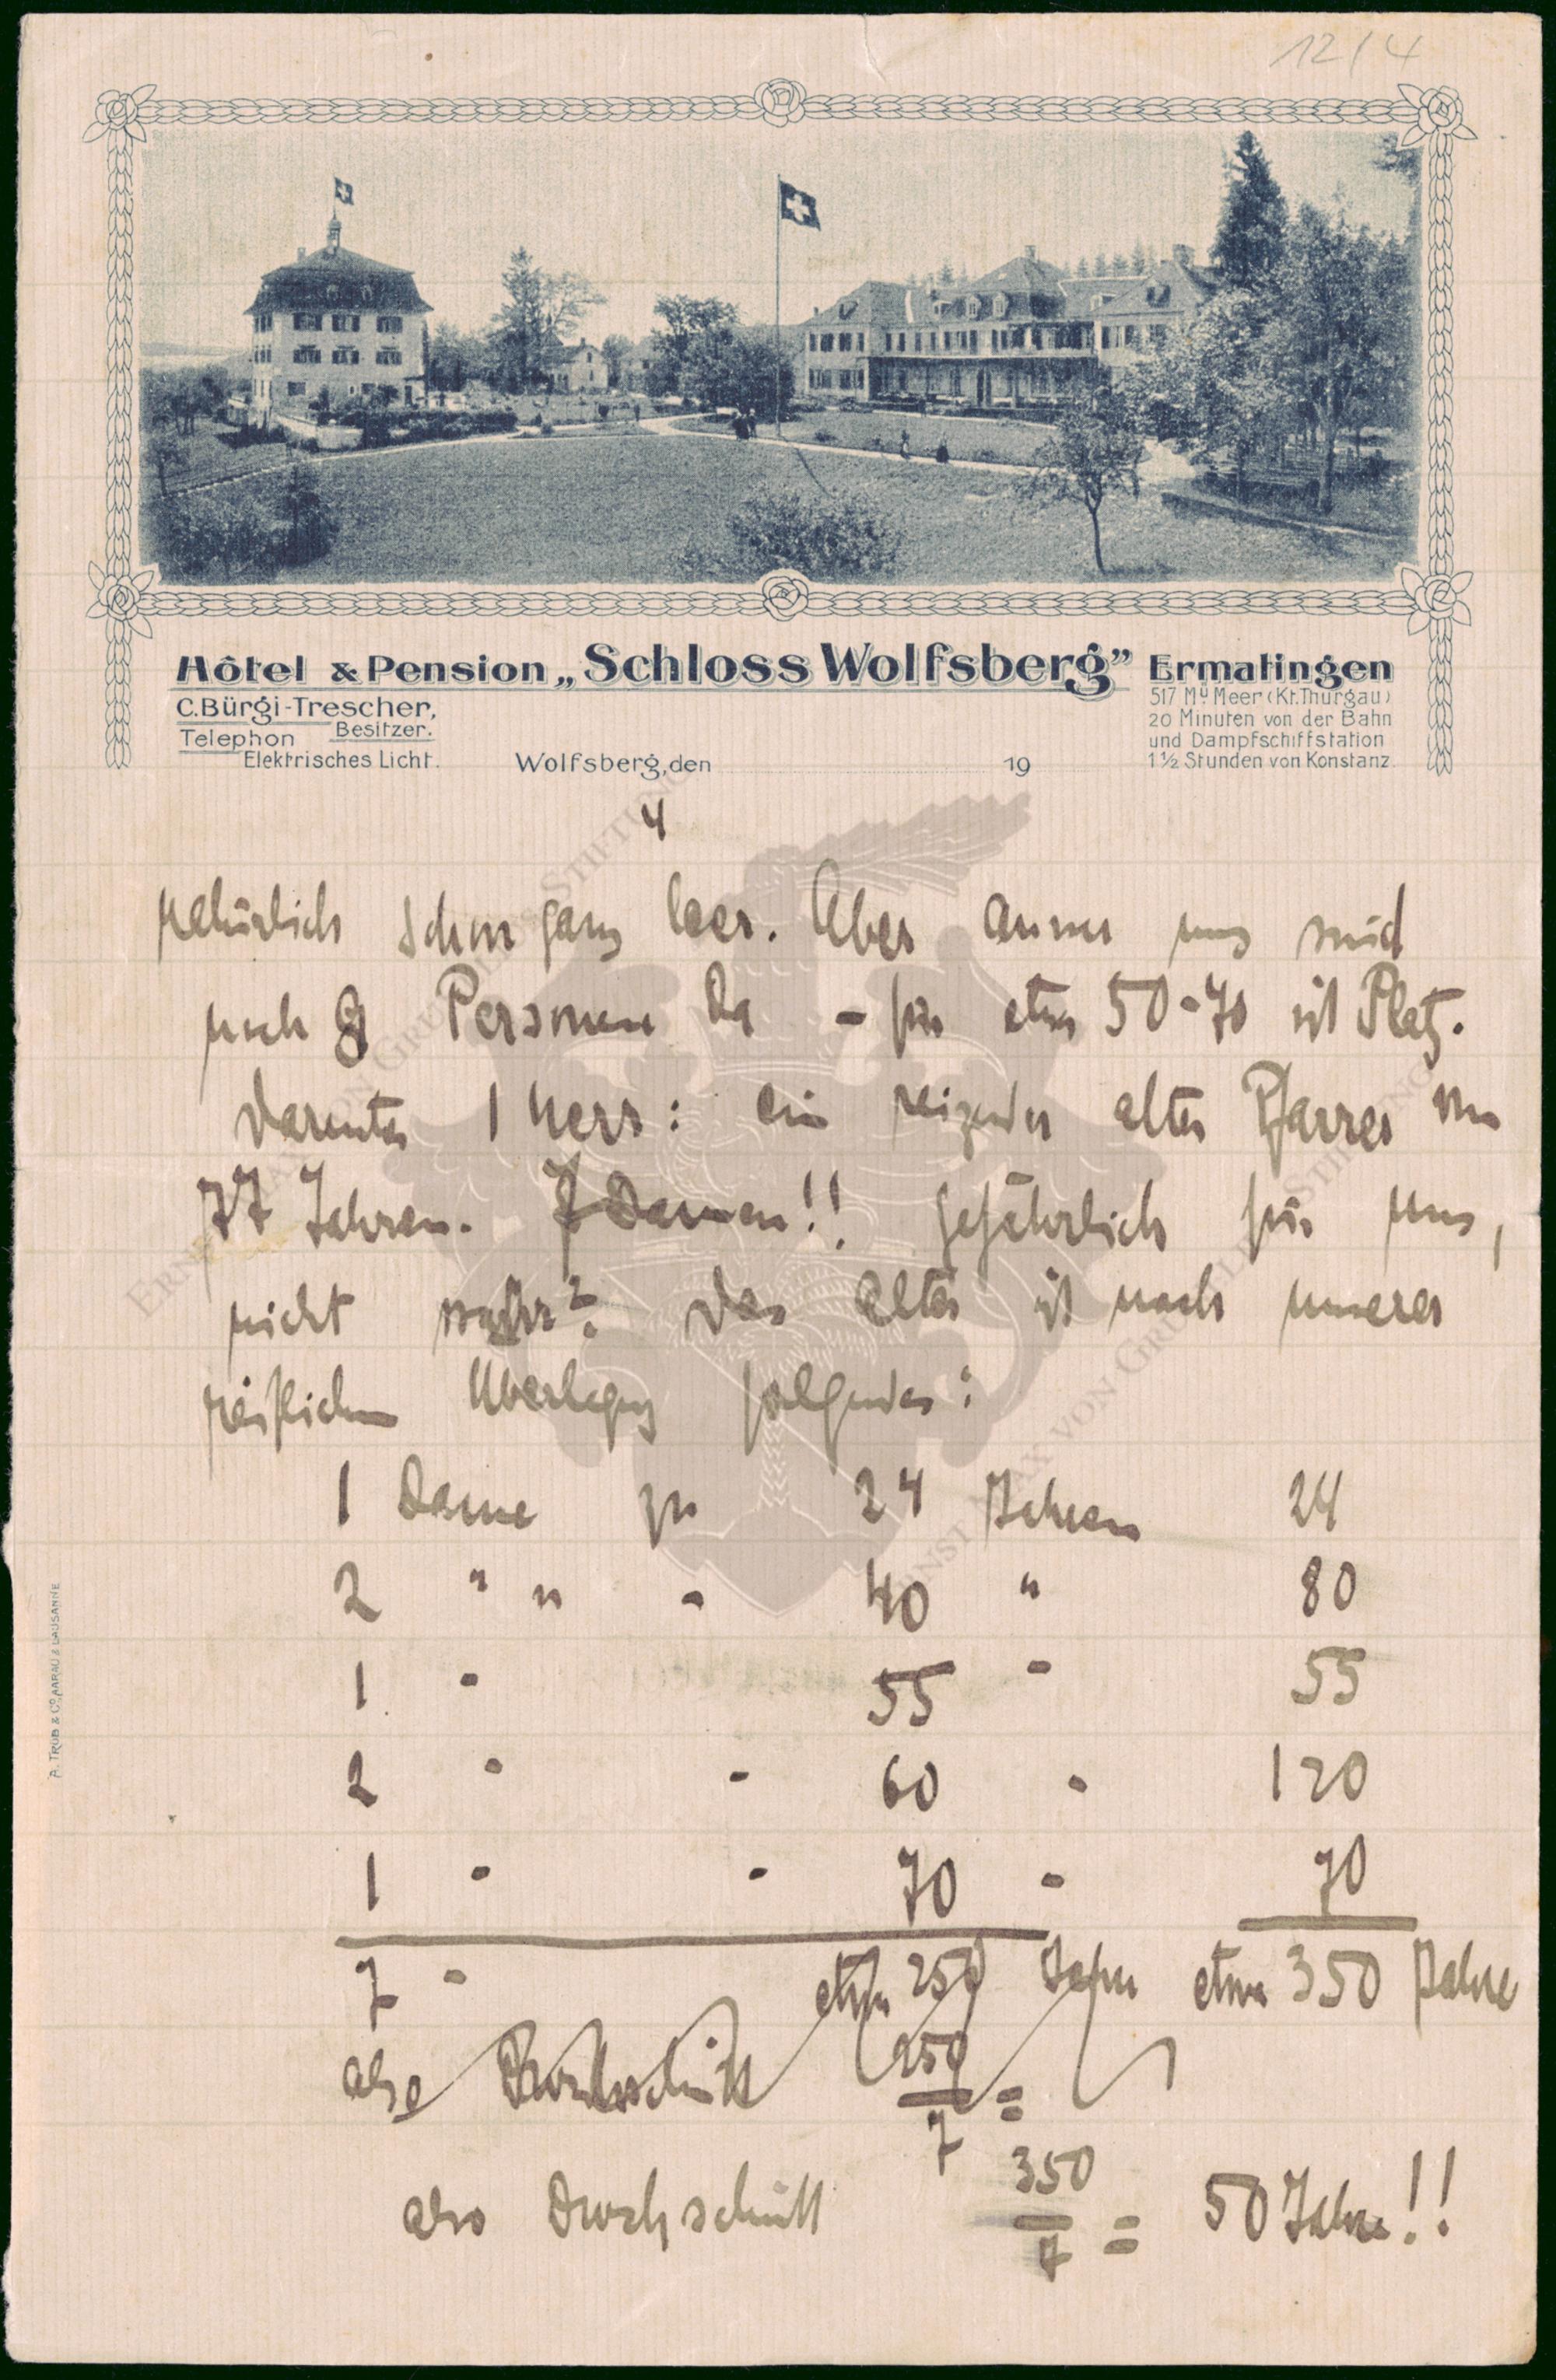 12/4
Hôtel & Pension „Schloss Wolfsberg” Ermatingen
C. Bürgi-Trescher,
Besitzer.
Telephon
Elektrisches Licht.
517 M ü Meer (Kt. Thurgau)
20 Minuten von der Bahn
und Dampfschiffstation
1 ½ Stunden von Konstanz.
Wolfsberg, den 19
4
natürlich schon ganz leer. Aber ausser uns sind
noch 8 Personen da - für etwa 50-70 ist Platz.
Darunter 1 Herr: ein reizender alter Pfarrer von
77 Jahren. 7 Damen!! Gefährlich für uns,
nicht wahr? Das Alter ist nach unserer
reiflichen Überlegung folgendes:
1 Dame zu 24 Jahren 24
2 " " - 40 " 80
1 - 55 - 55
2 - - 60 - 120
1 - - 70 - 70
7 - etwa 250 Jahre etwa 350 Jahre
also Durchschnitt 250/7 =
also Durchschnitt 350/7 = 50 Jahre!!
A. TRÜB & Co AARAU & LAUSANNE
ERNST MAX VON GRUNELIUS-STIFTUNG
ERNST MAX VON GRUNELIUS-STIFTUNG